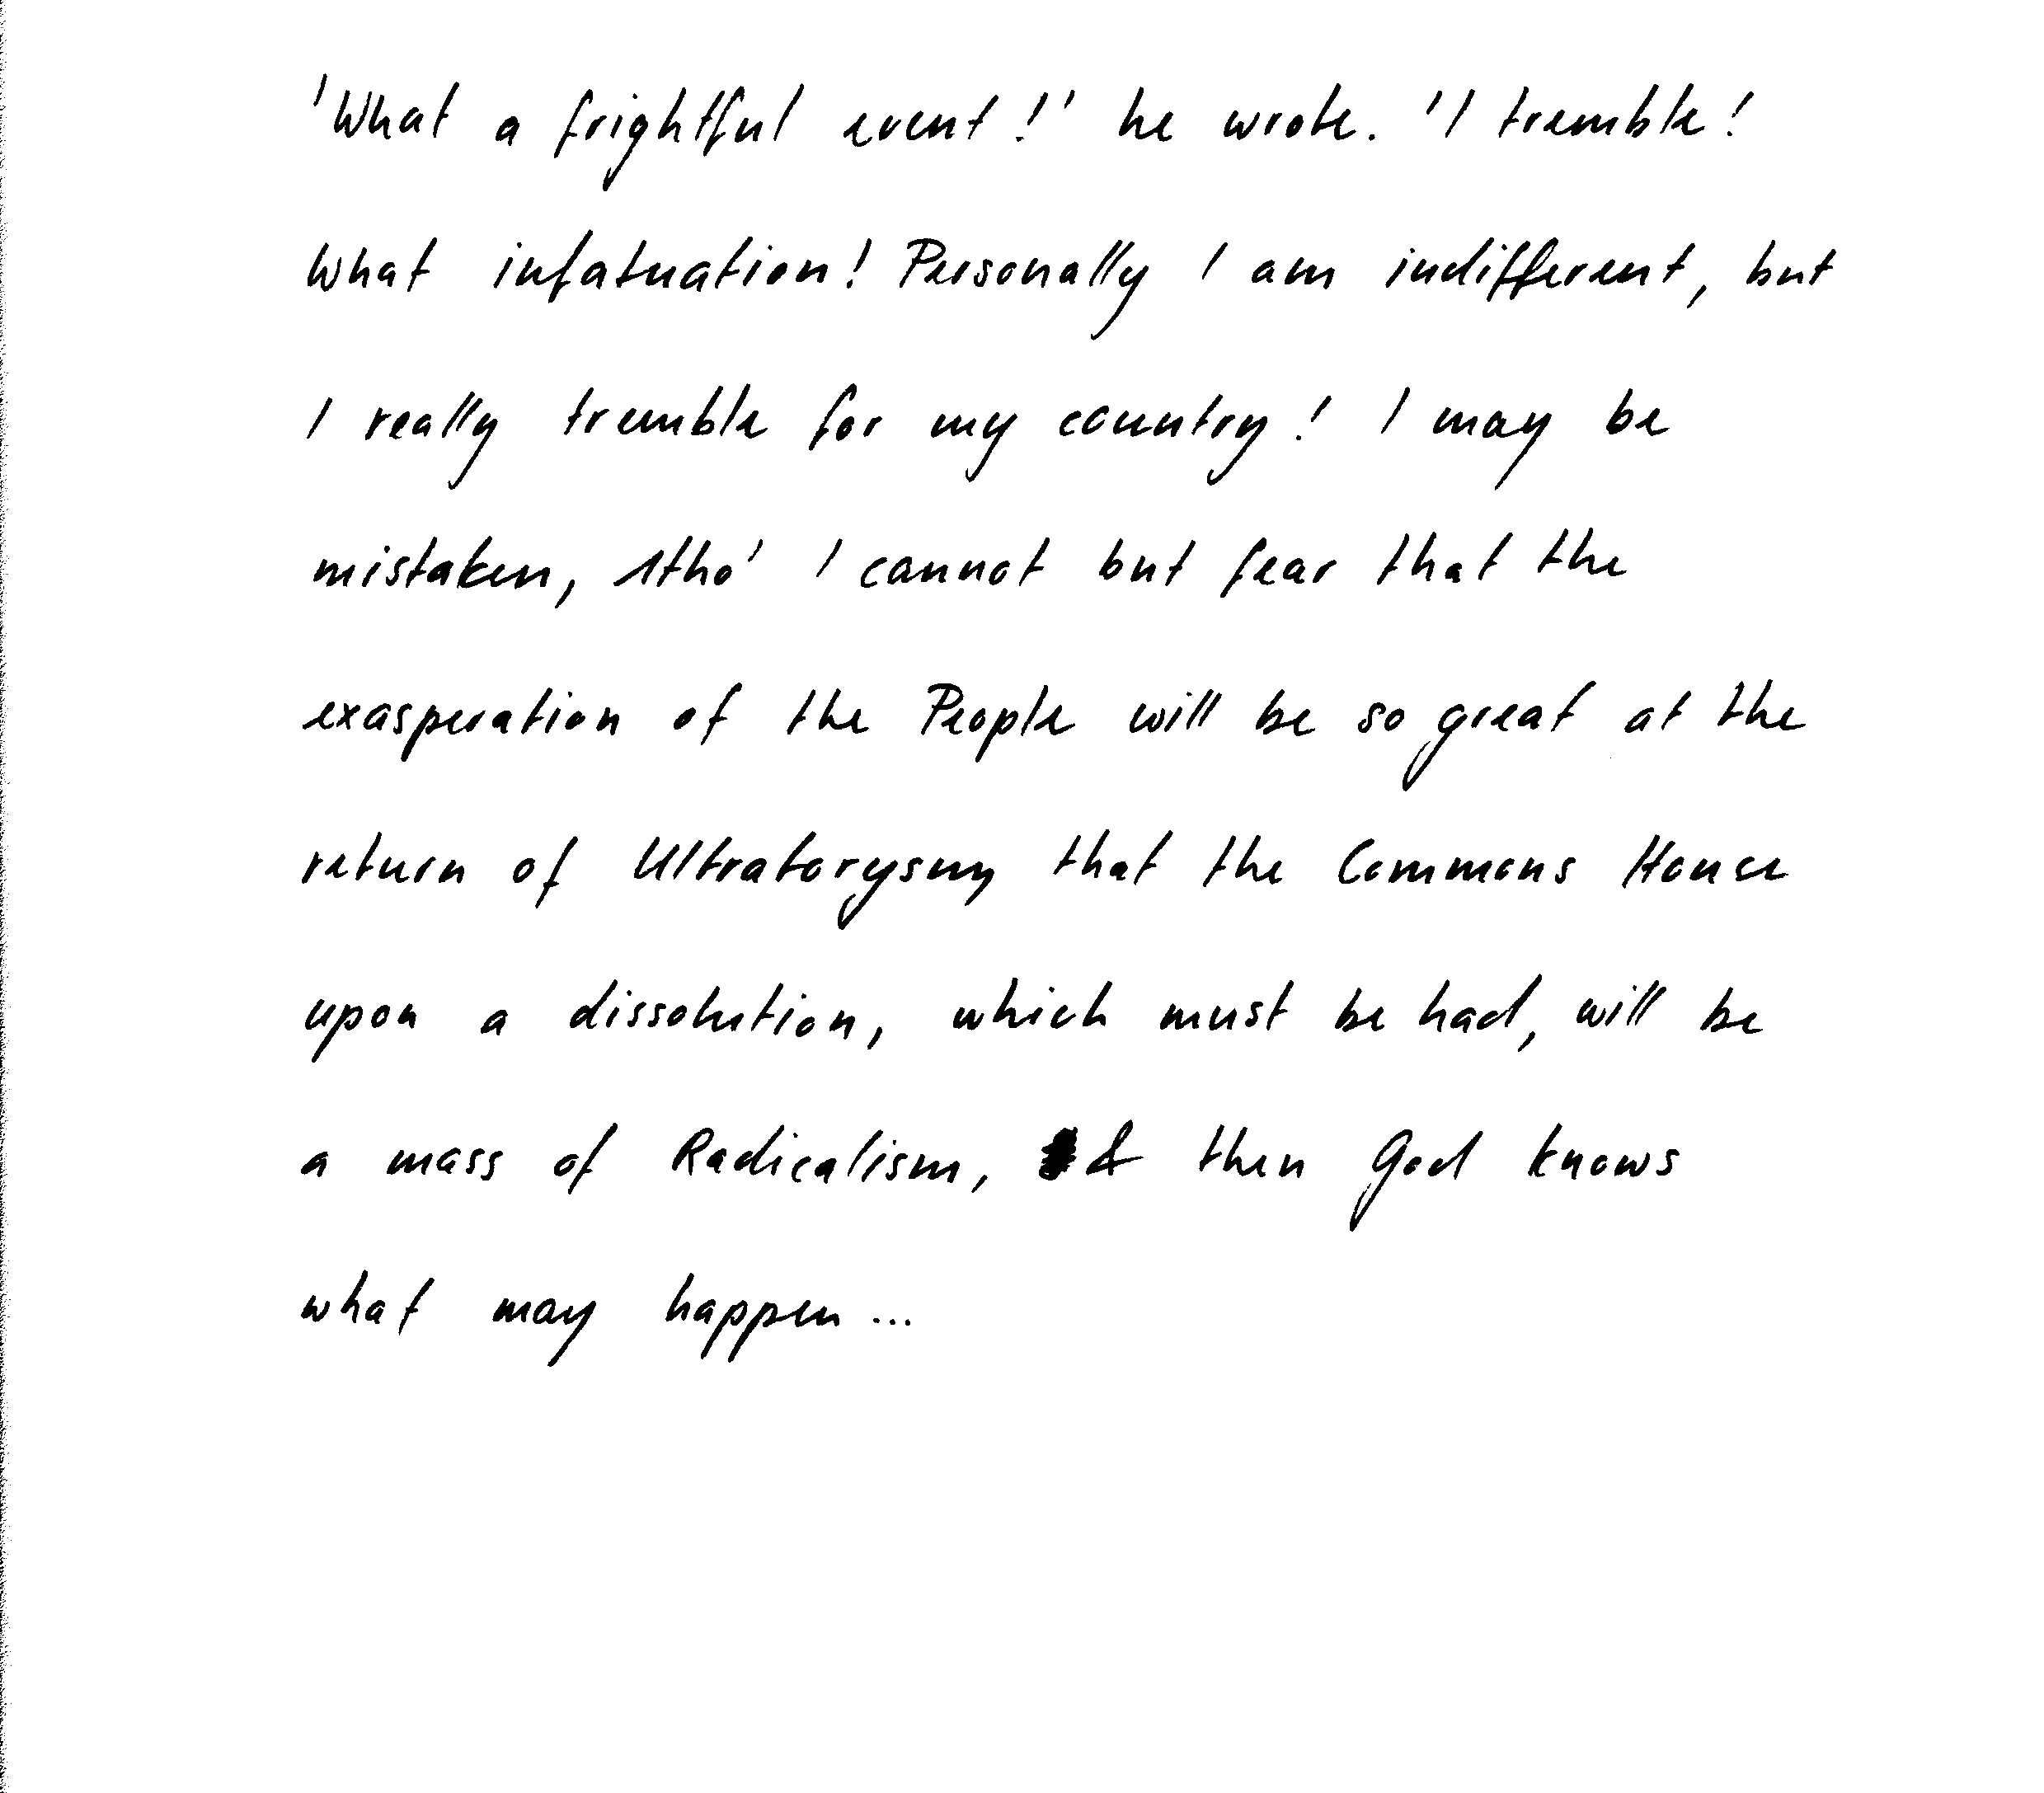 'What a frightful event!' he wrote. 'I tremble!
What infatuation! Personally I am indifferent, but
I really tremble for my country! I may be
mistaken, 1tho' I cannot but fear that the
exasperation of the People will be so great at the
return of Ultratorysm that the Commons House
upon a dissolution, which must be had, will be
a mass of Radicalism, & then God knows
what may happen...